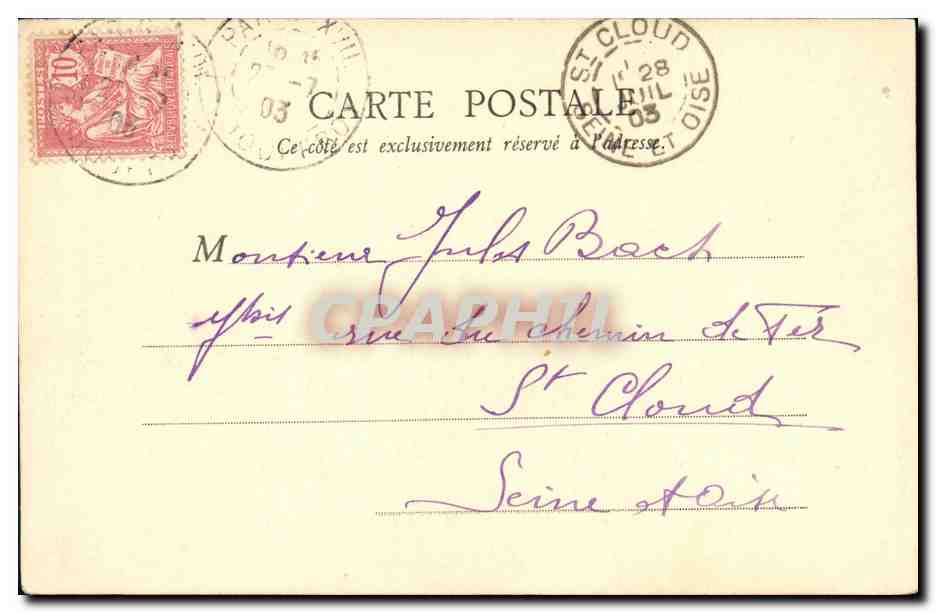 10
POSTES
PARIS XVII
27 -7
03
ST CLOUD
28
JUIL
03
SEINE ET OISE
CARTE POSTALE
Ce côté est exclusivement réservé à l'adresse.
Monsieur Jules Bach
bis rue du chemin de Fér
St Cloud
Seine et Oise
CPAPHIL